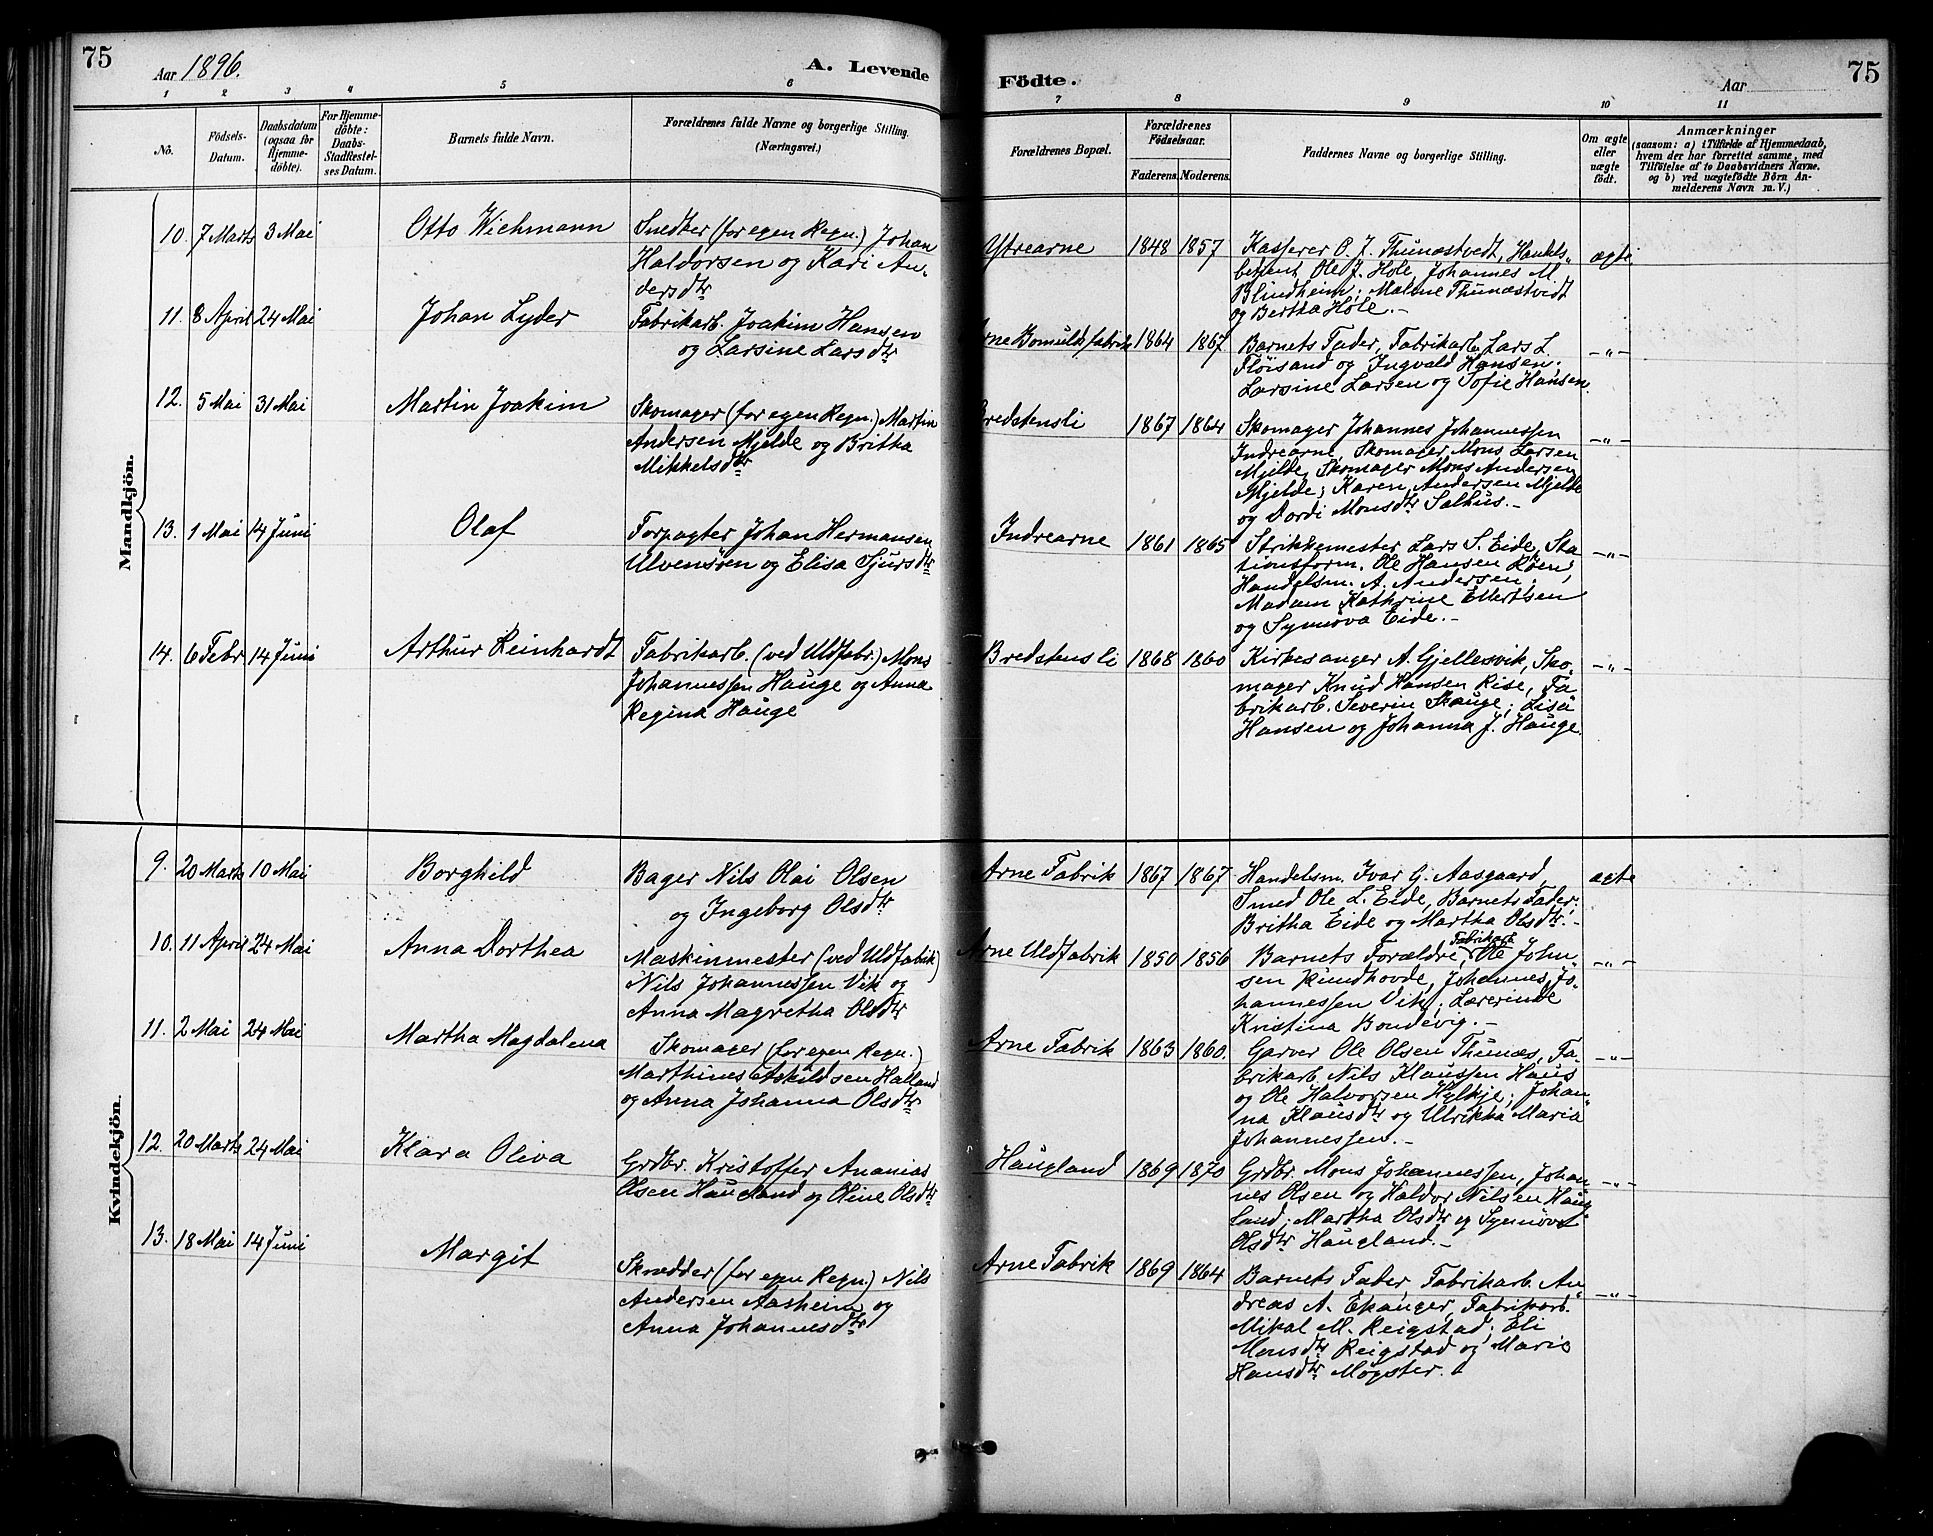 75
Aar 1896.
A. Levende
Födte.
Aar
75
1
2
3
4
5
6
7
8
9
10
11
No.
Födsels-
Datum.
Daabsdatum
(ogsaa for
Hjemme-
döbte).
For Hjemme-
döbte:
Daabs-
Stadfæstel-
ses Datum.
Barnets fulde Navn.
Forældrenes fulde Navne og borgerlige Stilling.
(Næringsvei.)
Forældrenes Bopæl.
Forældrenes
Födselsaar.
Faderens.
Moderens.
Faddernes Navne og borgerlige Stilling.
Om ægte
eller
uægte
født.
Anmærkninger
(saasom: a) i Tilfælde af Hjemmedaab,
hvem der har forrettet samme, med
Tilföielse af to Daabsvidners Navne.
og b) ved uægtefödte Börn An-
melderens Navn m. V.)
Mandkjön.
10. 7 Marts 3 Mai
Otto Wichmann
Snedker (for egen Regn.) Johan
Haldorsen og Kari An-
dersdtr
Ytrearne
1848 1857
Kasserer O. J. Thunæstvedt, Handels-
betjent Ole J. Hole, Johannes M
Blindheim; Malene Thunæstvedt
og Bertha Hole.-
ægte
11. 8 April 24 Mai
Johan Lyder
Fabrikarb. Joakim Hansen
og Larsine Larsdtr
rne Bomuldsfabrik
1864 1867
Barnets Fader, Fabrikarb. Lars L.
Flöisand og Ingvald Hansen;
Larsine Larsen og Sofie Hansen.
-"-
12. 5 Mai 31 Mai
Martin Joakim
Skomager (for egen Regn.) Martin
Andersen Mjelde og Britha
Mikkelsdtr
Bredstensli
1867 1864
Skomager Johannes Johannessen
Indrearne, Skomager Mons Larsen
Mjelde, Skomager Mons Andersen
Mjelde; Karen Andersen Mjelde
og Dordi Monsdtr Salhus.-
-"-
13. 1 Mai 14 Juni
Olaf
Forpagter Johan Hermansen
Ulvensöen og Elisa Sjursdtr
Indrearne
1861 1865
Strikkemester Lars S. Eide, Sta
tionsform. Ole Hansen Röen;
Handelsm. A. Andersen;
Madam Kathrine Ellertsen
og Synnöva Eide.-
-"-
14. 6 Febr 14 Juni
Arthur Reinhardt
Fabrikarb. (ved Uldfabr.) Mons
Johannessen Hauge og Anna
Regina Hauge
Bredstensli
1868 1860
Kirkesanger A. Gjellesvik, Sko-
mager Knud Hansen Rise, Fa
brikarb. Severin Skauge; Lisa
Hansen og Johanna J. Hauge.
-"-
Kvindekjön.
9. 20 Marts 10 Mai
Borghild
Bager Nils Olai Olsen
og Ingeborg Olsdtr
Arne Fabrik
1867 1867
Handelsm. Ivar G. Aasgaard,
Smed Ole L. Eide, Barnets Fader;
Britha Eide og Martha Olsdtr.-
ægte
10. 11 April 24 Mai
Anna Dorthea
Maskinmester (ved Uldfabrik)
Nils Johannessen Vik og
Anna Magretha Olsdtr
Arne Uldfabrik
1850 1856
Fabrikarb
Barnets Forældre, Ole John
sen Rundhovde, Johannes Jo-
hannessen Vik; Lærerinde
Kristina Bondevig.-
-"-
11. 2 Mai 24 Mai
Martha Magdalena
Skomager (for egen Regn.)
Marthines Askildsen Halland
og Anna Johanna Olsdtr
Arne Fabrik
1863 1860.
Garver Ole Olsen Thunæs, Fa-
brikarb. Nils Klaussen Haus
og Ole Halvorsen Hylkje; Johan-
na Klausdtr og Ulrikka Maria
Johannessen.-
-"-
12. 20 Marts 24 Mai
Klara Oliva
Grdbr. Kristoffer Ananias
Olsen Haugland og Oline Olsdtr
Haugland
1869 1870
Grdbr Mons Johannessen, Johan
nes Olsen og Haldor Nilsen Haug
land; Martha Olsdtr og Synnöve
Olsdtr Haugland.-
-"-
13. 18 Mai 14 Juni
Margit
Skrædder (for egen Regn.) Nils
Andersen Aasheim og
Anna Johannesdtr
Arne Fabrik
1869 1864
Barnets Fader, Fabrikarb. An
dreas A. Ekanger, Fabrikarb.
Mikal M. Reigstad; Eli
Monsdtr Reigstad og Marie
Hansdtr Mögster.
-"-